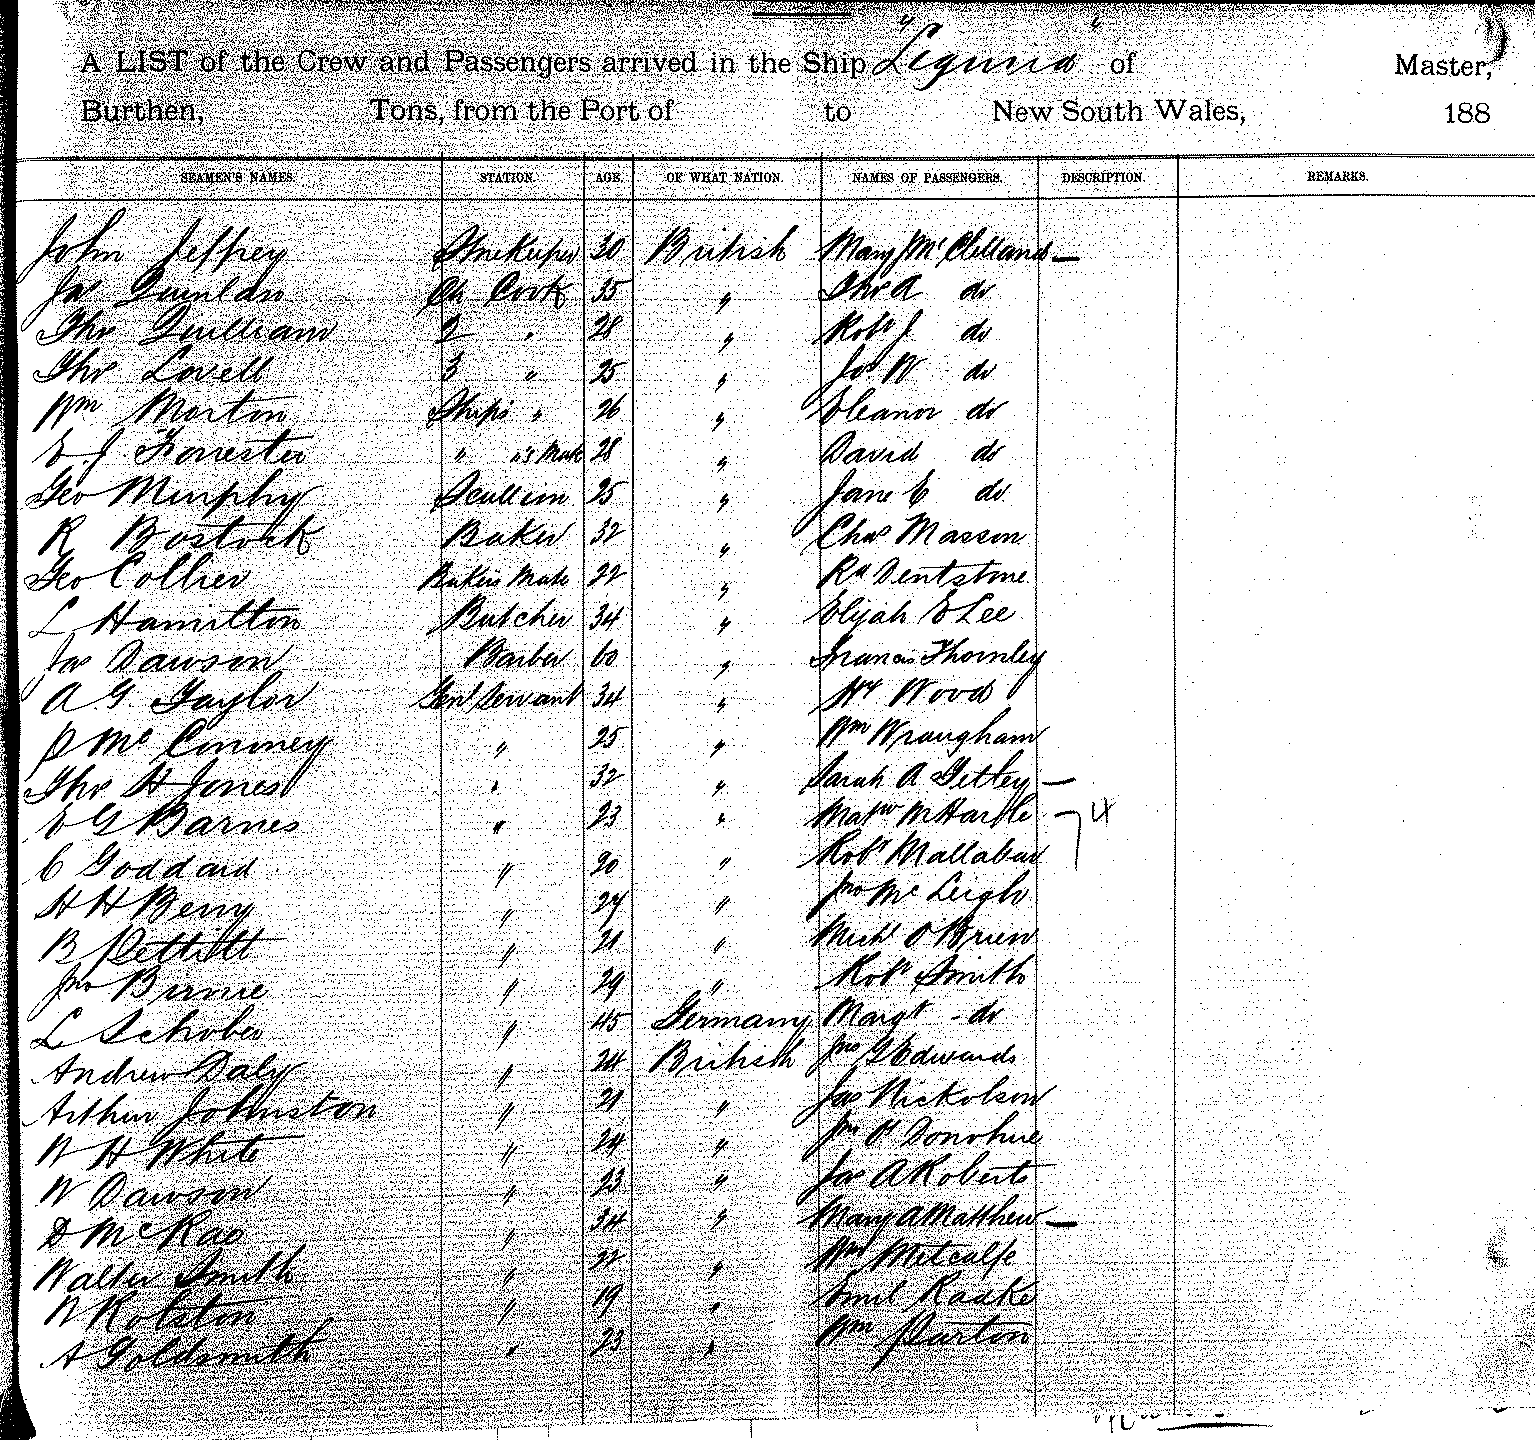 A LIST of the Crew and Passengers arrived in the Ship "Liguria" of Master,
Burthen, Tons, from the Port of to New South Wales, 188
SEAMEN'S NAMES. STATION. AGE. OF WHAT NATION. NAMES OF PASSENGERS. DESCRIPTION. REMARKS.
John Jeffrey Storekeeper 30 British Mary Mc Clelland —
Jas Ch Cook 35 " Thos A do
Thos Quilliam 2 " 28 " Robt J do
Thos Lovell 3 " 25 " Jos W do
Wm Morton Ships " 26 " Eleanor do
E J Forrester " "s Mate 28 " David do
Geo Murphy Scullion 25 " Jane E do
R Bostock Baker 32 " Chas Masson
Geo Collier Bakers Mate 22 " Rd Dentstone
L Hamilton Butcher 34 " Elijah E Lee
Jas Dawson Barber 60 " Francis Thornley
A G Taylor Genl Servant 34 " Hy Wood
P Mc " 25 " Wm Wraugham
Thos H Jones " 32 " Sarah A Tetley —
E G Barnes " 23 " Mattw McHarfle 4
C Goddard " 20 " Robt Mallabar
H H Berry " 27 " Jno Mc Leigh
B Pettitt " 21 " Michl O'Brien
Jno Birnie " 29 " Robt Smith
L Schober " 45 Germany Margt - do
Andrew Daly " 24 British Jno Edwards
Arthur Johnston " 21 " Jas Nickolson
W H White " 24 " Jno O'Donohue
W Dawson " 23 " Jas A Roberts
D McRae " 34 " Mary A Matthew —
Walter Smith " 22 " Wm Metcalfe
W Rolston " 19 " Emil Raake
A Goldsmith " 23 " Wm Purton